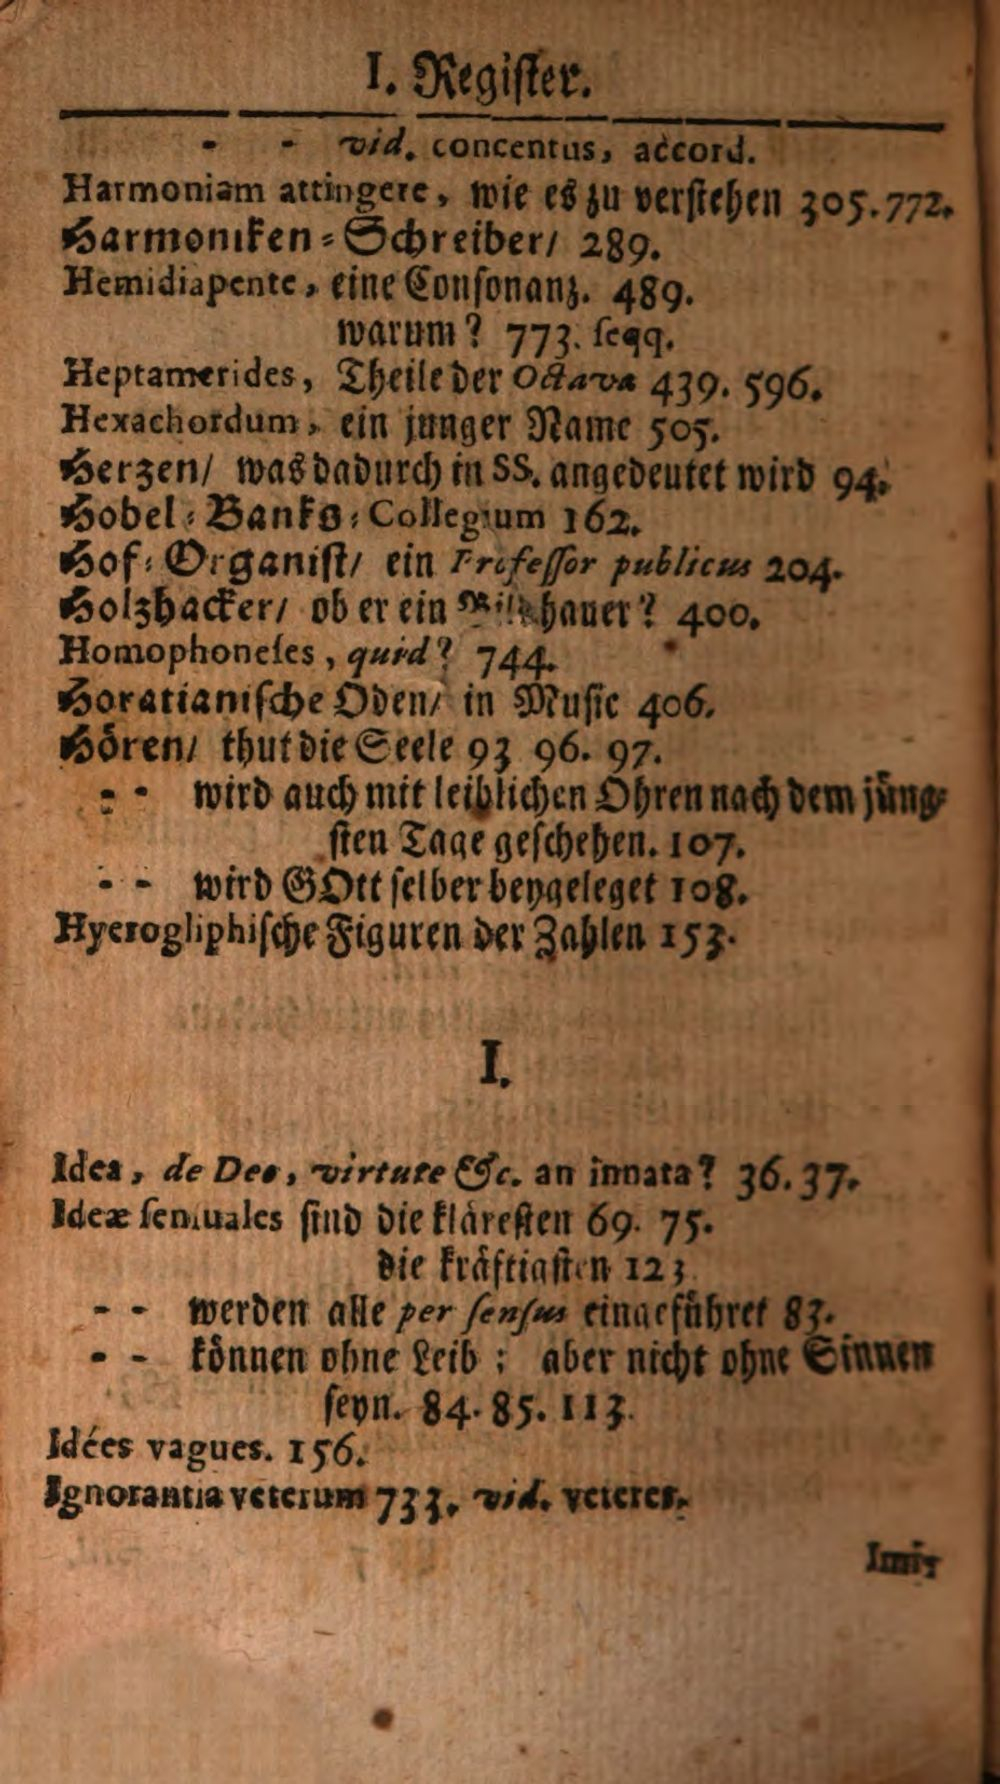 I. Register.
- - vid. concentus, accord.
Harmoniam attingere, wie es zu verstehen 305. 772.
Harmoniken-Schreiber/ 289.
Hemidiapente, eine Consonanz. 489.
warum? 773. seqq.
Heptamerides, Theile der Octava 439. 596.
Hexachordum, ein junger Name 505.
Herzen/ was dadurch in SS. angedeutet wird 94.
Hobel-Banks-Collegium 162.
Hof-Organist/ ein Professor publicus 204.
Holzhacker/ ob er ein Bildhauer? 400.
Homophoneses, quid? 744.
Horatianische Oden/ in Music 406.
Hören/ thut die Seele 93 96. 97.
- - wird auch mit leiblichen Ohren nach dem jüng-
sten Tage geschehen. 107.
- - wird GOtt selber beygeleget 108.
Hyerogliphische Figuren der Zahlen 153.
I.
Idea, de Deo, virtute &c. an innata? 36. 37.
Ideæ sensuales sind die kläresten 69. 75.
die kräftigsten 123
- - werden alle per sensus eingeführet 83.
- - können ohne Leib; aber nicht ohne Sinnen
seyn. 84. 85. 113.
Idées vagues. 156.
Ignorantia veterum 733. vid. veteres.